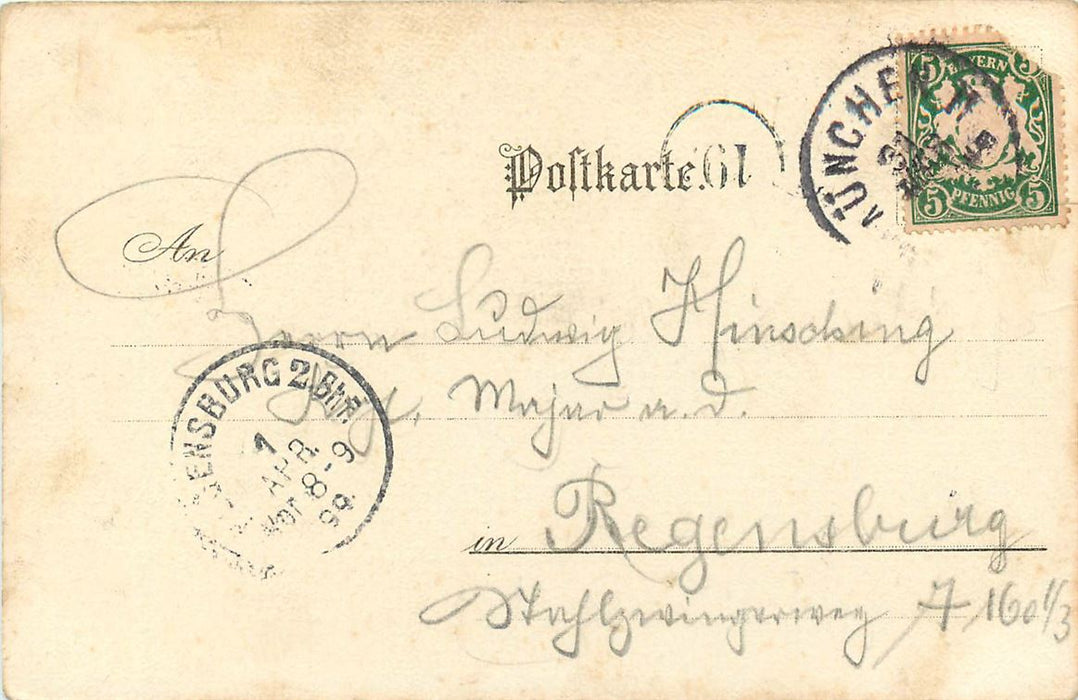 BAYERN
5 5
5 PFENNIG 5
MÜNCHEN
Postkarte. 61
An
Herrn Ludwig Hinsching
Kgl. Major a. D.
in Regensburg
Stahlzwingerweg 7, 160 1/3
REGENSBURG 2. Bhf.
1
APR.
Vor 8-9
99